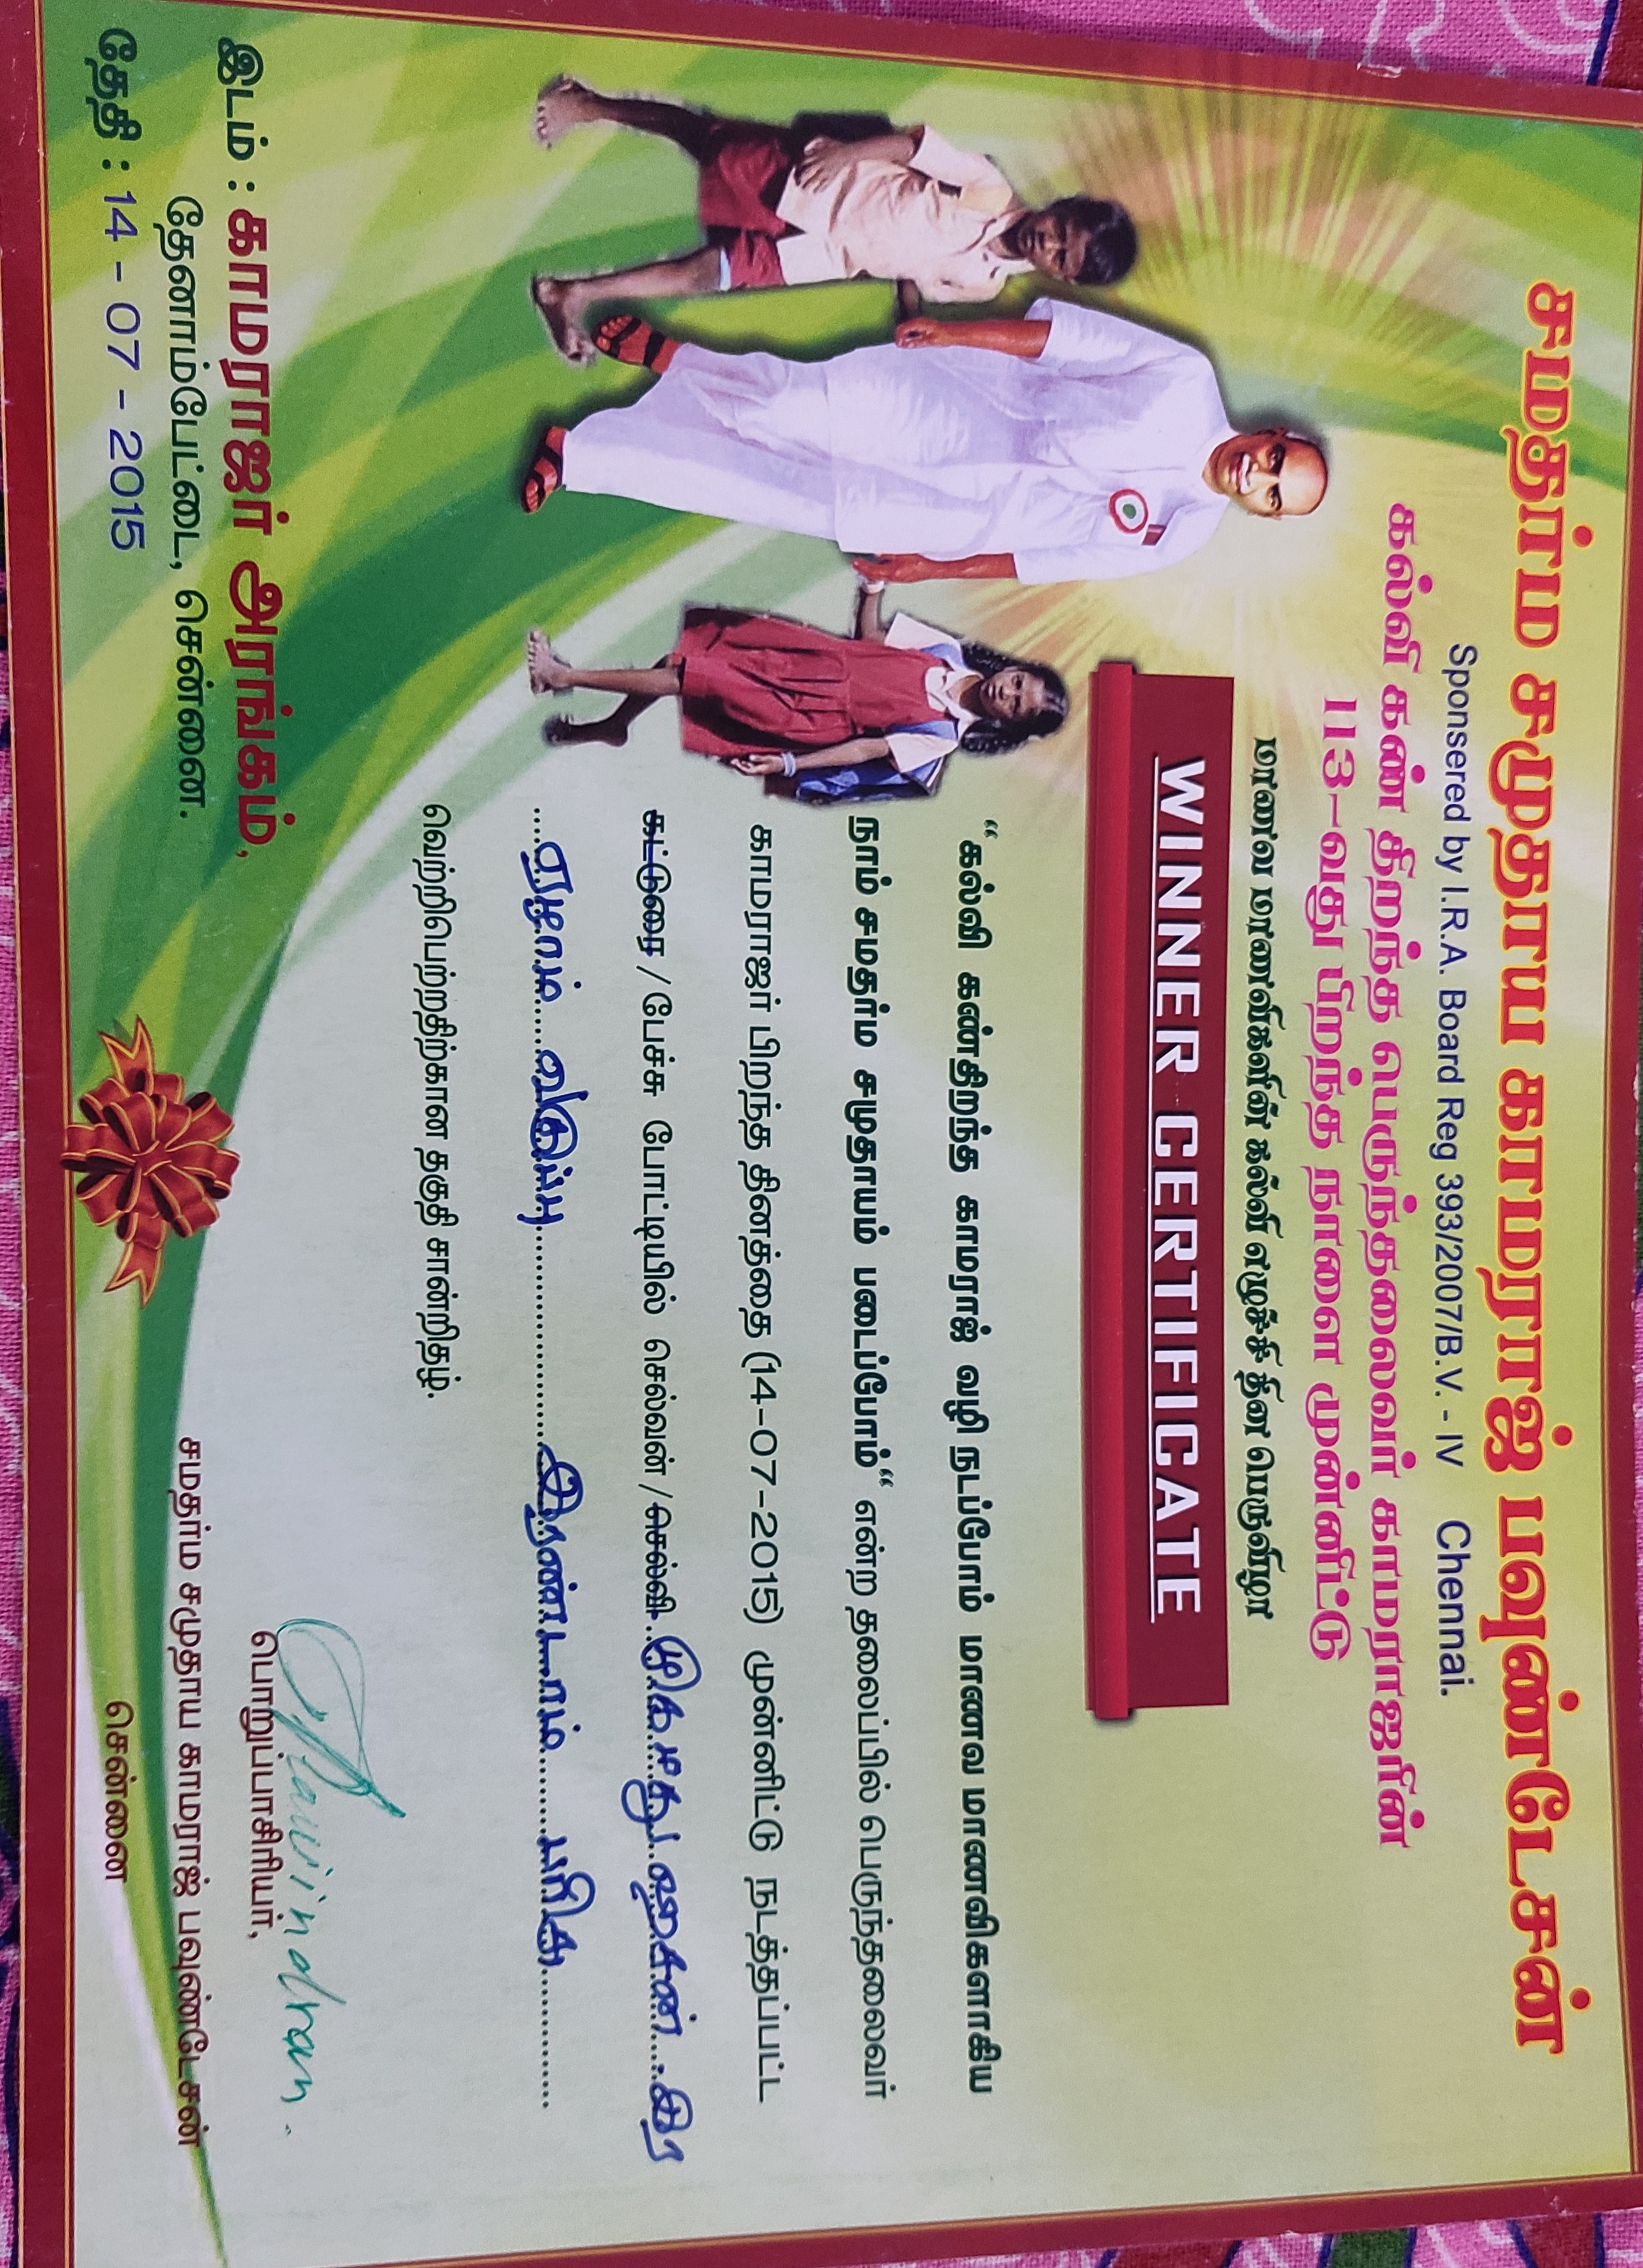 சமதர்ம சமுதாய காமராஜ் பவுண்டேசன்
Sponsered by I.R.A. Board Reg 393/2007/B.V. - IV Chennai.
கல்வி கண் திறந்த பெருந்தலைவர் காமராஜரின்
113-வது பிறந்த நாளை முன்னிட்டு
மாணவ மாணவிகளின் கல்வி எழுச்சி தின பெருவிழா
WINNER CERTIFICATE
“கல்வி கண்திறந்த காமராஜ் வழி நடப்போம் மாணவ மாணவிகளாகிய
நாம் சமதர்ம சமுதாயம் படைப்போம்“ என்ற தலைப்பில் பெருந்தலைவர்
காமராஜர் பிறந்த தினத்தை (14-07-2015) முன்னிட்டு நடத்தப்பட்ட
கட்டுரை / பேச்சு போட்டியில் செல்வன் / செல்வி முகமது ஹசன் .இர
ஏழாம் வகுப்பு இரண்டாம் பரிசு
வெற்றிபெற்றதிற்கான தகுதி சான்றிதழ்.
Rawindran.
பொறுப்பாசிரியர்,
சமதர்ம சமுதாய காமராஜ் பவுண்டேசன்
சென்னை
இடம் : காமராஜர் அரங்கம்,
தேனாம்பேட்டை, சென்னை.
தேதி : 14 - 07 - 2015